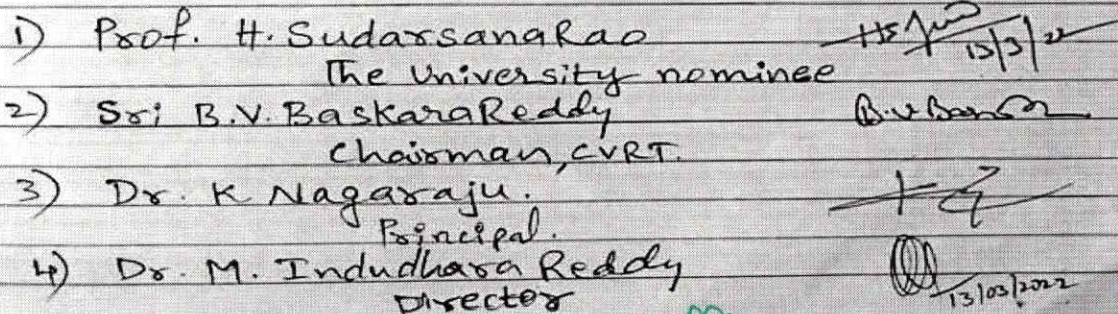 1) Prof. H. SudarsanaRao
13/3/22
The University nominee
2) Sri B.V. BaskaraReddy
Chairman, CVRT.
3) Dr. K Nagaraju.
Principal.
4) Dr. M. Indudhara Reddy
Director
13/03/2022